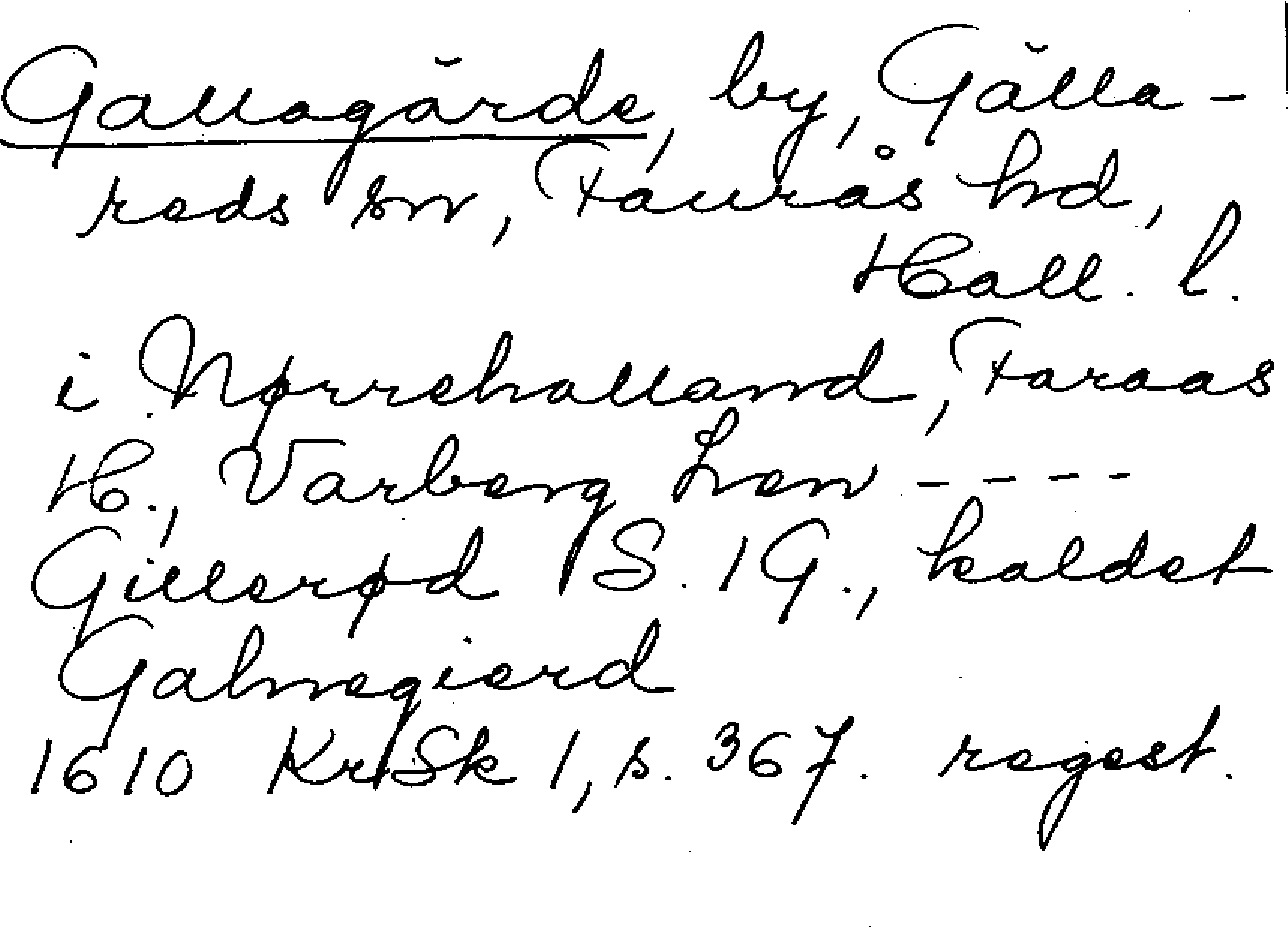 Gallagärde, by, Gälla-
reds sn, Faurås hd,
Hall. l.
i Nørrehalland, Faraas
H., Varberg Len ----
Gillerød S. 1 G., kaldet
Galnegierd
1610 KrSk 1, s. 367. regest.